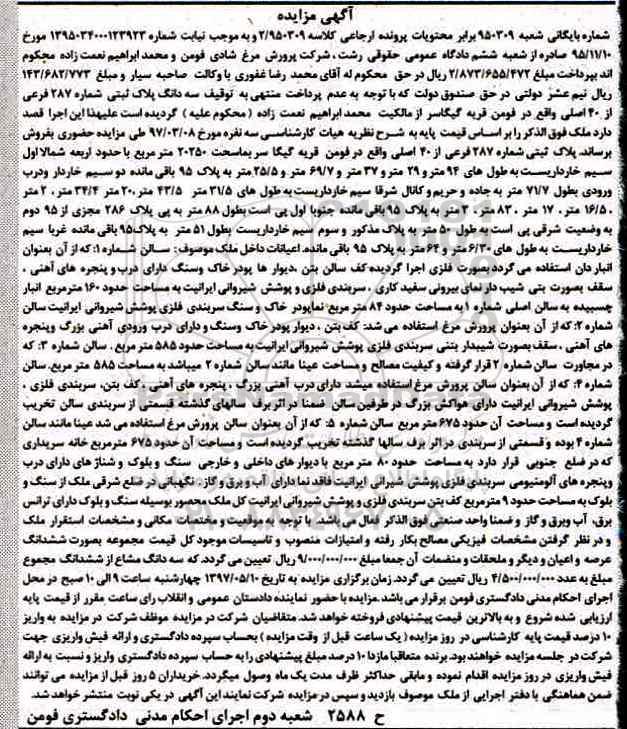 آگهی مزایده
شماره بایگانی شعبه ۹۵۰۳۰۹ برابر محتویات پرونده ارجاعی کلاسه ۲/۹۵۰۳۰۹ و به موجب نیابت شماره ۱۳۹۵۰۳۴۰۰۰۱۲۳۹۲۳ مورخ
۹۵/۱۱/۱۰ صادره از شعبه ششم دادگاه عمومی حقوقی رشت ، شرکت پرورش مرغ شادی فومن و محمد ابراهیم نعمت زاده محکوم
اند بپرداخت مبلغ ۲/۸۷۳/۶۵۵/۴۷۲ ریال در حق محکوم له آقای محمد رضا غفوری با وکالت صاحبه سیار و مبلغ ۱۴۳/۶۸۲/۷۷۳
ریال نیم عشر دولتی در حق صندوق دولت که با توجه به عدم پرداخت منتهی به توقیف سه دانگ پلاک ثبتی شماره ۲۸۷ فرعی
از ۴۰ اصلی واقع در فومن قریه گیگاسر از مالکیت محمد ابراهیم نعمت زاده ( محکوم علیه ) گردیده است علیهذا این اجرا قصد
دارد ملک فوق الذکر را بر اساس قیمت پایه به شرح نظریه هیات کارشناسی سه نفره مورخ ۹۷/۰۳/۰۸ طی مزایده حضوری بفروش
برساند. پلاک ثبتی شماره ۲۸۷ فرعی از ۴۰ اصلی واقع در فومن قریه گیگا سر بمساحت ۲۰۲۵۰ متر مربع با حدود اربعه شمالا اول
سیم خارداریست به طول های ۹۴ متر و ۲۹ متر و ۳۷ متر و ۶۹/۷ متر و ۲۵/۵ متر به پلاک ۹۵ باقی مانده دو سیم خاردار ودرب
ورودی بطول ۷۱/۷ متر به جاده و حریم و کانال شرقا سیم خارداریست به طول های ۳۱/۵ متر ۴۳/۵ متر ،۲۰ متر ، ۳۴/۴ متر ، ۲ متر
، ۱۶/۵ متر ، ۱۷ متر ، ۸۳ متر ، ۳ متر به پلاک ۹۵ باقی مانده جنوبا اول پی است بطول ۸۸ متر به پی پلاک ۲۸۶ مجزی از ۹۵ دوم
به وضعیت شرقی پی است به طول ۵۰ متر به پلاک مذکور و سوم سیم خارداریست بطول ۵۱ متر به پلاک ۹۵ باقی مانده غربا سیم
خارداریست به طول های ۶/۳۰ متر و ۶۴ متر به پلاک ۹۵ باقی مانده. اعیانات داخل ملک موصوف : سالن شماره ۱: که از آن بعنوان
انبار دان استفاده می گردد بصورت فلزی اجرا گردیده کف سالن بتن ،دیوار ها پودر خاک وسنگ دارای درب و پنجره های آهنی ،
سقف بصورت بتی شیب دار نمای بیرونی سفید کاری ، سربندی فلزی و پوشش شیروانی ایرانیت به مساحت حدود ۱۶۰ مترمربع انبار
چسبیده به سالن اصلی شماره ۱ به مساحت حدود ۸۴ متر مربع نماپودر خاک و سنگ سربندی فلزی پوشش شیروانی ایرانیت سالن
شماره ۲: که از آن بعنوان پرورش مرغ استفاده می شد: کف بتن ، دیوار پودر خاک وسنگ و دارای درب ورودی آهنی بزرگ وپنجره
های آهنی ، سقف بصورت شیبدار بتنی سربندی فلزی پوشش شیروانی ایرانیت به مساحت حدود ۵۸۵ متر مربع . سالن شماره ۳: که
در مجاورت سالن شماره ۲ قرار گرفته و کیفیت مصالح و مساحت عینا مانند سالن شماره ۲ میباشد به مساحت ۵۸۵ متر مربع. سالن
شماره ۴: که از آن بعنوان سالن پرورش مرغ استفاده میشد دارای درب آهنی بزرگ ، پنجره های آهنی ، کف بتن، سربندی فلزی ،
پوشش شیروانی ایرانیت دارای هواکش بزرگ در طرفین سالن ضمنا در اثر برف سالهای گذشته قسمتی از سربندی سالن تخریب
گردیده است و مساحت آن حدود ۶۷۵ متر مربع سالن شماره ۵: که از آن بعنوان سالن پرورش مرغ استفاده می شد عینا مانند سالن
شماره ۴ بوده و قسمتی از سربندی در اثر برف سالها گذشته تخریب گردیده است و مساحت آن حدود ۶۷۵ مترمربع خانه سریداری
که در ضلع جنوبی قرار دارد به مساحت حدود ۸۰ متر مربع با دیوار های داخلی و خارجی سنگ و بلوک و شناژ های دارای درب
وپنجره های آلومنیومی سربندی فلزی پوشش شیرانی ایرانیت فاقد نما دارای آب و برق و گاز . نگهبانی در ضلع شرقی ملک از سنگ و
بلوک به مساحت حدود ۹ مترمربع کف بتن سربندی فلزی و پوشش شیروانی ایرانیت کل ملک محصور بوسیله سنگ و بلوک دارای ترانس
برق، آب وبرق و گاز و ضمنا واحد صنعتی فوق الذکر فعال می باشد. با توجه به موقعیت و مختصات مکانی و مشخصات استقرار ملک
و در نظر گرفتن مشخصات فیزیکی مصالح بکار رفته و امتیازات منصوب و تاسیسات موجود کل قیمت مجموعه بصورت ششدانگ
عرصه و اعیان و دیگر و ملحقات و منضمات آن جمعا مبلغ ۹/۰۰۰/۰۰۰/۰۰۰ ریال تعیین می گردد. که سه دانگ مشاع از ششدانگ مجموع
مبلغ به عدد ۴/۵۰۰/۰۰۰/۰۰۰ ریال تعیین می گردد. زمان برگزاری مزایده به تاریخ ۱۳۹۷/۰۵/۱۰ چهارشنبه ساعت ۹ الی ۱۰ صبح در محل
اجرای احکام مدنی دادگستری فومن برقرار می باشد. مزایده با حضور نماینده دادستان عمومی و انقلاب رای ساعت مقرر از قیمت پایه
ارزیابی شده شروع و به بالاترین قیمت پیشنهادی فروخته خواهد شد. متقاضیان شرکت در مزایده موظف شرکت در مزایده به واریز
۱۰ درصد قیمت پایه کارشناسی در روز مزایده ( یک ساعت قبل از وقت مزایده ) بحساب سپرده دادگستری و ارائه فیش واریزی جهت
شرکت در جلسه مزایده خواهند بود. برنده متعاقبا مازاد ۱۰ درصد مبلغ پیشنهادی را به حساب سپرده دادگستری واریز و نسبت به ارائه
فیش واریزی در روز مزایده اقدام نموده و مابقی حداکثر ظرف مدت یک ماه وصول میگردد. خریداران ۵ روز قبل از مزایده می توانند
ضمن هماهنگی با دفتر اجرایی از ملک موصوف بازدید و سپس در مزایده شرکت نمایند این آگهی در یکی نوبت منتشر خواهد شد.
ح ۲۵۸۸ شعبه دوم اجرای احکام مدنی دادگستری فومن